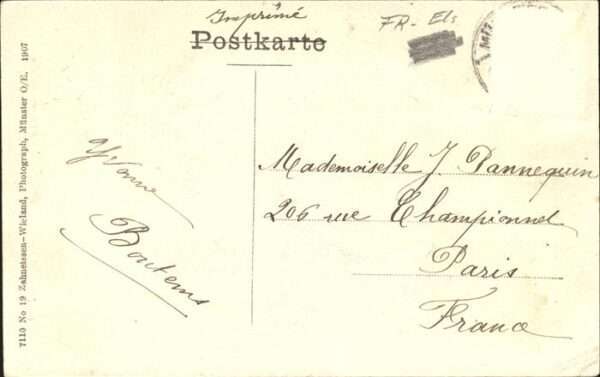 Imprimé
Postkarte
FR- Els
Yvonne
Boutems
Mademoiselle J. Dannequin
206 rue Championnet
Paris
France
7110 No 19 Zehnetesen-Wieland, Photograph, Münster O/E. 1907